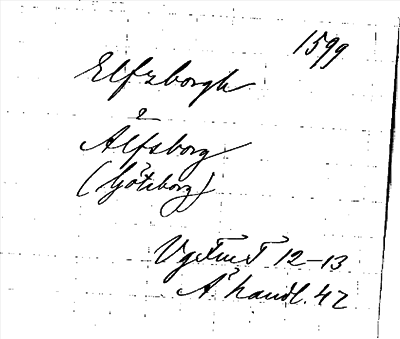 1599
Elfzborgh
Älfsborg
(Göteborg)
12-13
Å handl. 42